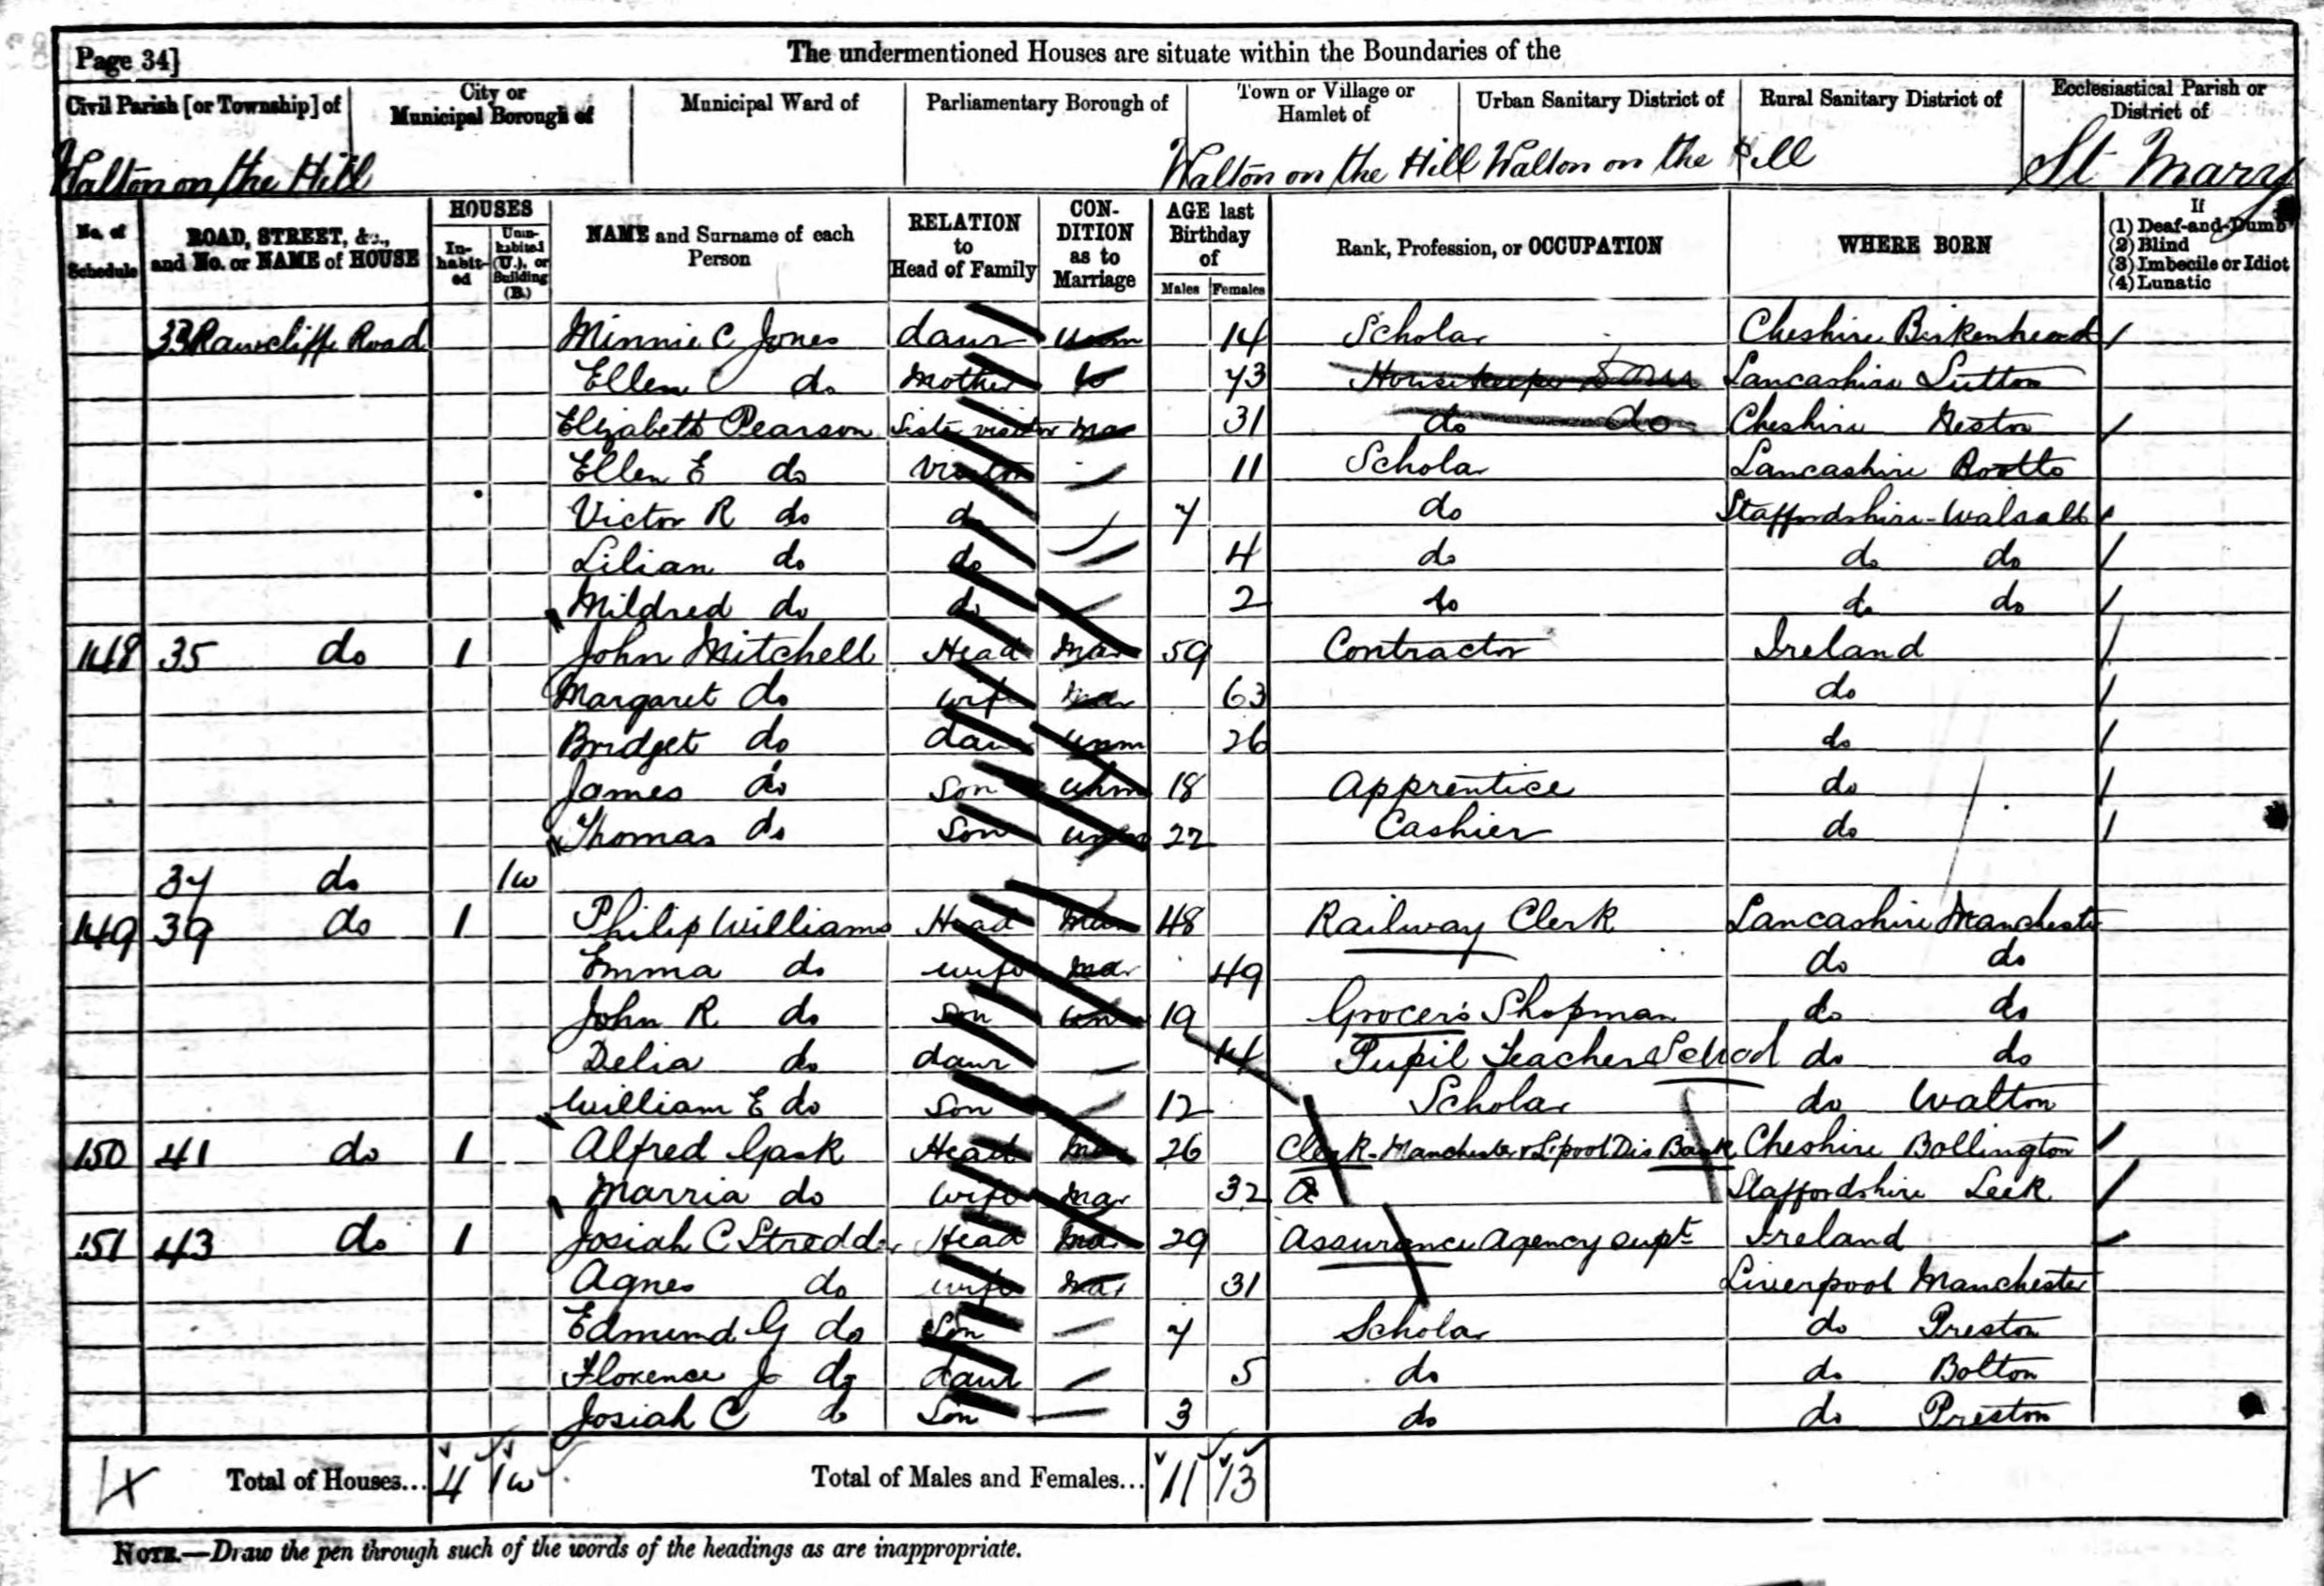 Page 34]
The undermentioned Houses are situate within the Boundaries of the
Civil Parish [or Township] of
City or Municipal Borough of
Municipal Ward of
Parliamentary Borough of
Town or Village or Hamlet of
Urban Sanitary District of
Rural Sanitary District of
Ecclesiastical Parish or District of
Walton on the Hill Walton on the Hill Walton on the Hill St Mary
No. of Schedule
ROAD, STREET, &c., and No. or NAME of HOUSE
HOUSES
In-habit-ed
Unin-habited (U.), or Building (B.)
NAME and Surname of each Person
RELATION to Head of Family
CON-DITION as to Marriage
AGE last Birthday of
Males Females
Rank, Profession, or OCCUPATION
WHERE BORN
If
(1) Deaf-and-Dumb
(2) Blind
(3) Imbecile or Idiot
(4) Lunatic
33 Rawcliffe Road Minnie C Jones daur Unm 14 Scholar Cheshire Birkenhead
Ellen do Mother 73 Housekeeper Lancashire Sutton
Elizabeth Pearson Sister visitor Mar 31 do do Cheshire Neston
Ellen E do Visitor 11 Scholar Lancashire Bootle
Victor R do do 7 do Staffordshire - Walsall
Lilian do do 4 do do do
Mildred do do 2 do do do
148 35 do 1 John Mitchell Head Mar 59 Contractor Ireland
Margaret do wife Mar 63 do
Bridget do daur Unm 26 do
James do Son Unm 18 Apprentice do
Thomas do Son Unm 22 Cashier do
37 do 1w
149 39 do 1 Philip Williams Head Mar 48 Railway Clerk Lancashire Manchester
Emma do wife Mar 49 do do
John R do Son Unm 19 Grocer's Shopman do do
Delia do daur 14 Pupil Teacher School do do
William E do Son 12 Scholar do Walton
150 41 do 1 Alfred Gask Head Mar 26 Clerk - Manchester & L'pool Dis Bank Cheshire Bollington
Marria do Wife Mar 32 Staffordshire Leek
151 43 do 1 Josiah C Head Mar 29 Assurance Agency Supt Ireland
Agnes do wife Mar 31 Liverpool Manchester
Edmund G do Son 7 Scholar do Preston
Florence J do daur 5 do do Bolton
Josiah C do Son 3 do do Preston
Total of Houses... 4 1w Total of Males and Females... 11 13
NOTE.—Draw the pen through such of the words of the headings as are inappropriate.